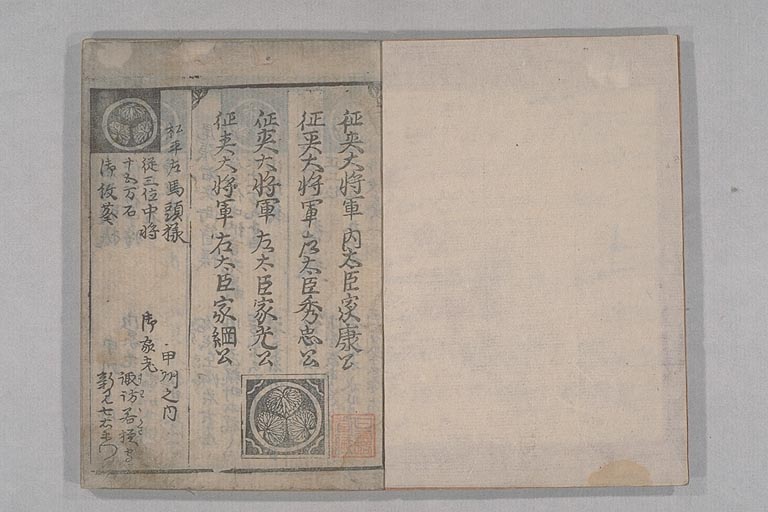 征夷大将軍 内大臣家康公
征夷大将軍 右大臣秀忠公
征夷大将軍 左大臣家光公
征夷大将軍 右大臣家綱公
松平左馬頭様
従三位中将
十五万石
御紋葵
甲州之内
御家老
諏訪若狭守
新見七右衛門